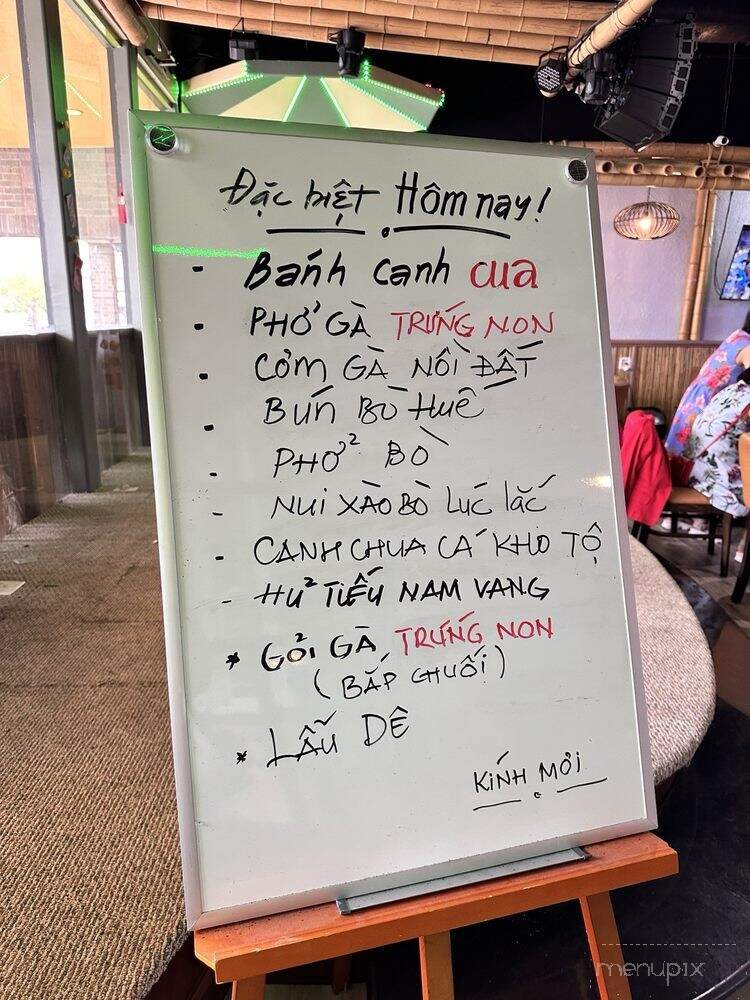 Đặc biệt Hôm nay!
- Bánh canh cua
- PHỞ GÀ TRỨNG NON
- CƠM GÀ NỒI ĐẤT
- BÚN BÒ HUẾ
- PHỞ BÒ
- NUI XÀO BÒ LÚC LẮC
- CANH CHUA CÁ KHO TỘ
- HỦ TIẾU NAM VANG
* GỎI GÀ, TRỨNG NON
(BẮP CHUỐI)
* LẨU DÊ
KÍNH MỜI
menupix